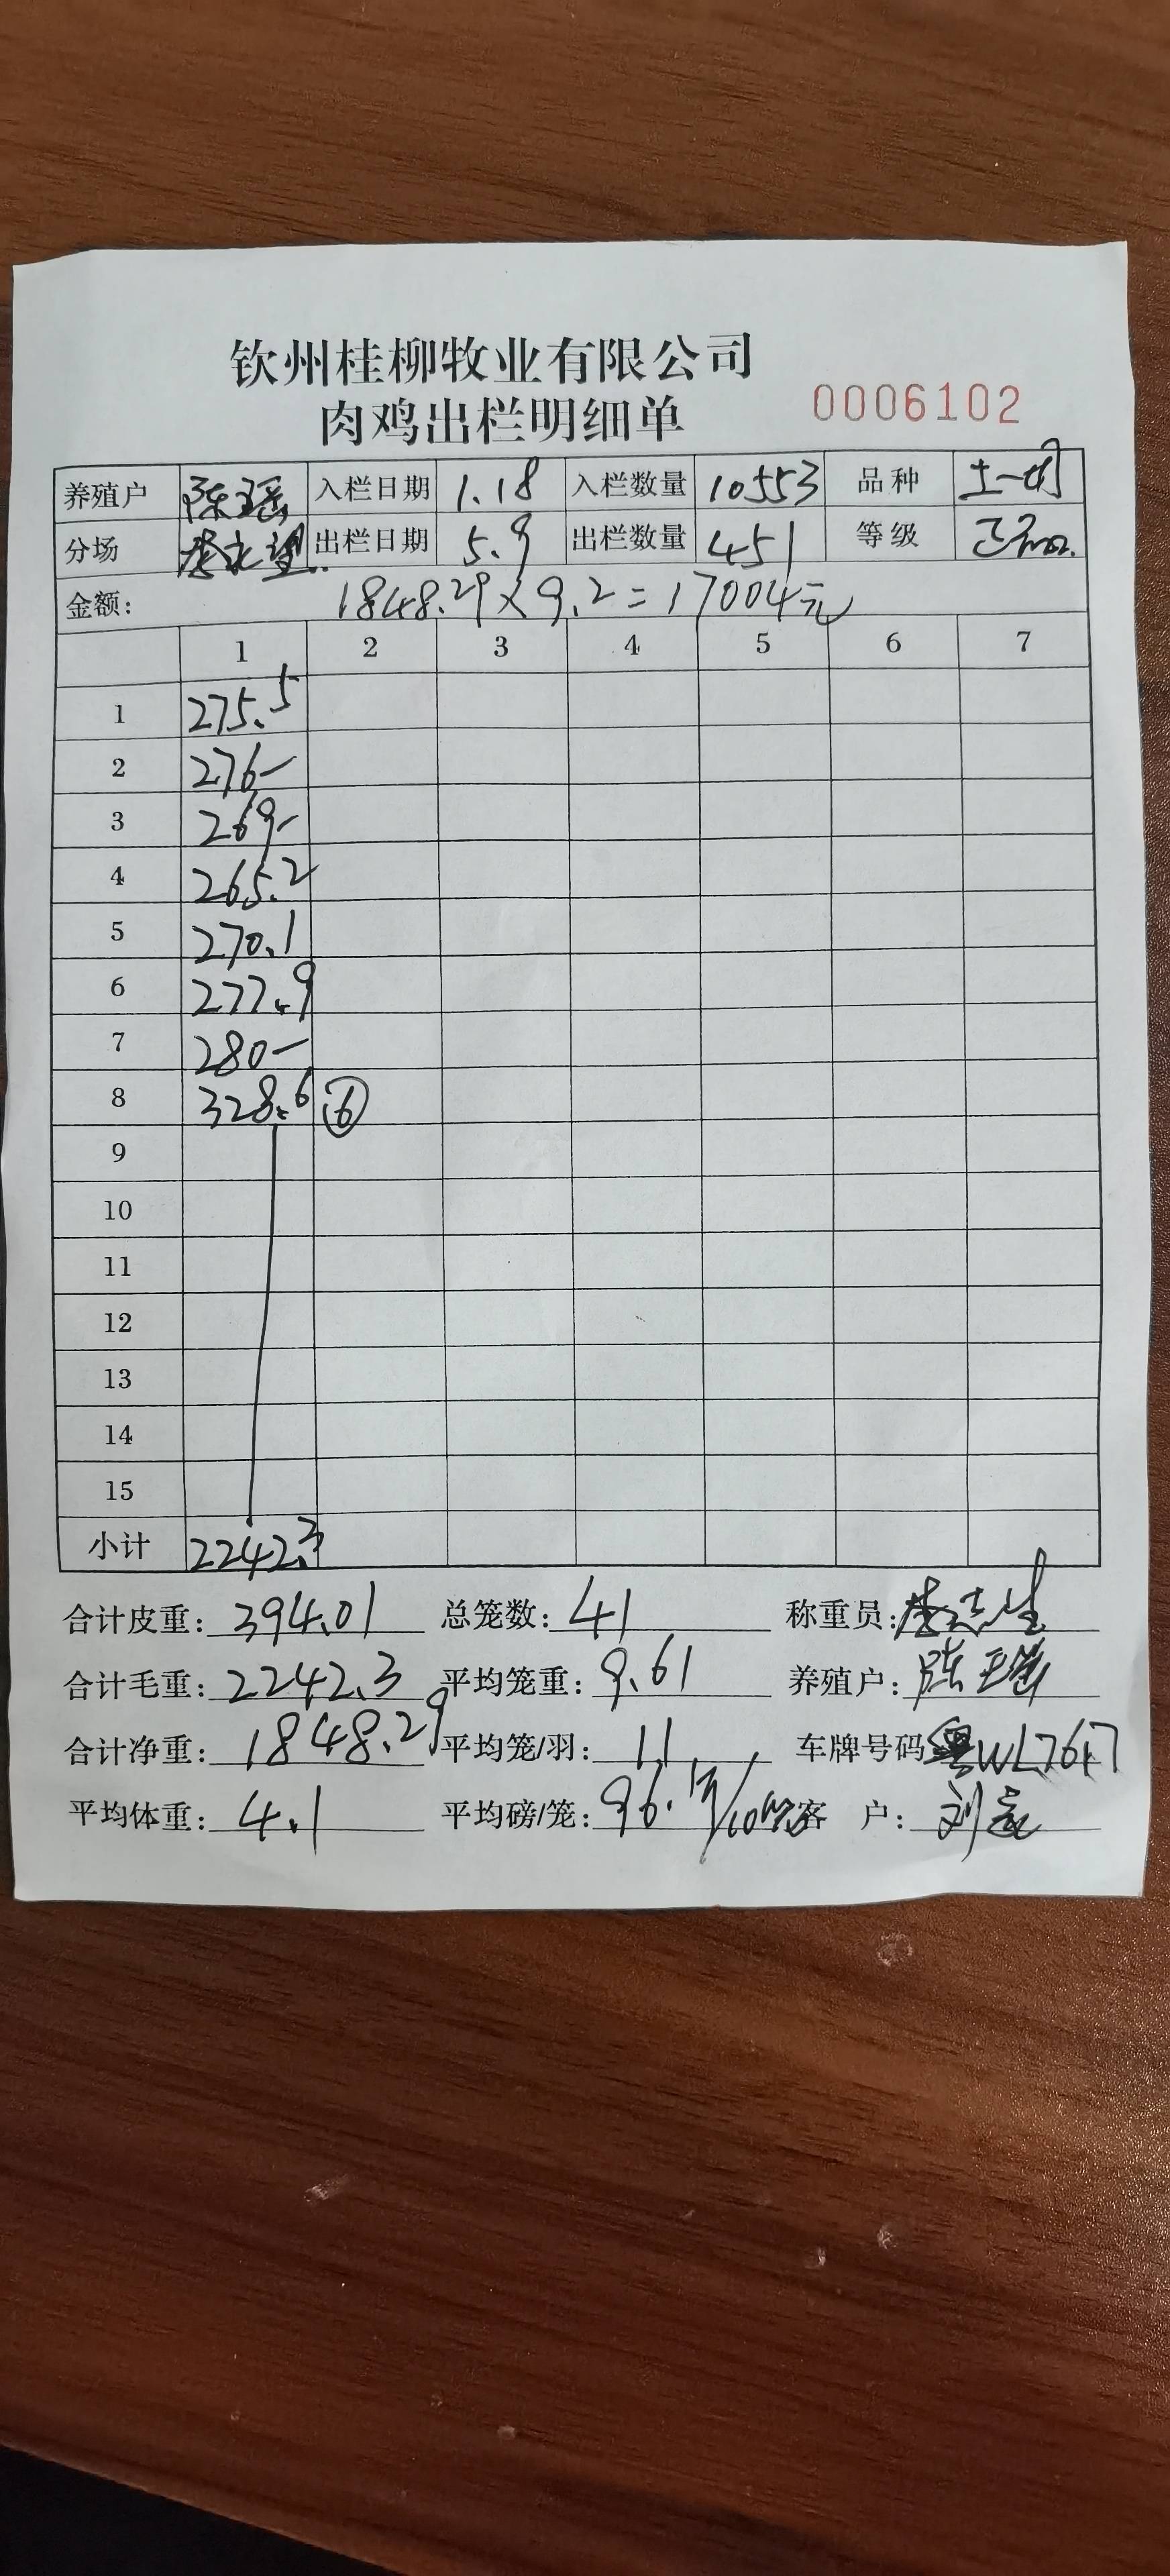 钦州桂柳牧业有限公司
肉鸡出栏明细单 0006102
养殖户 陈 入栏日期 1.18 入栏数量 10553 品种 土一
分场 出栏日期 5.9 出栏数量 451 等级 正
金额: 1848.29×9.2=17004元
1 2 3 4 5 6 7
1 275.5
2 276-
3 269-
4 265.2
5 270.1
6 277.9
7 280-
8 328.6 ⑥
9
10
11
12
13
14
15
小计 2242.3
合计皮重: 394.01 总笼数: 41 称重员:
合计毛重: 2242.3 平均笼重: 9.61 养殖户: 陈
合计净重: 1848.29 平均笼/羽: 11 车牌号码 粤WL7647
平均体重: 4.1 平均磅/笼: 96. 客 户: 刘